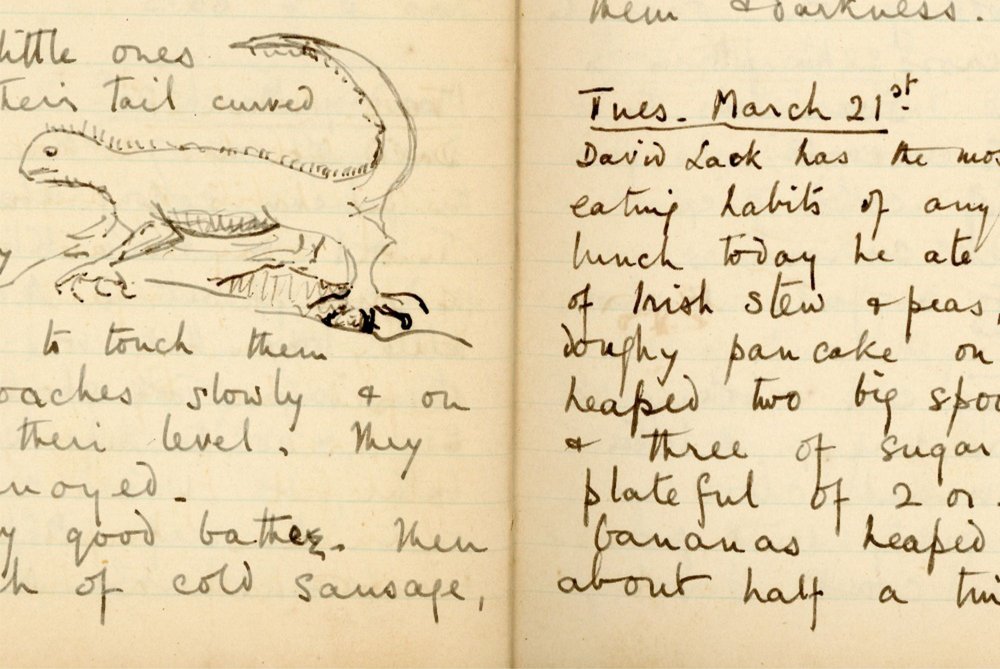 little ones
their tail curved
y
to touch them
oaches slowly & on
their level. They
nnoyed_
y good bathe. Then
ch of cold sausage,
them & darkness.
Tues. March 21st
David Lack has the mos
eating habits of any
lunch today he ate
of Irish stew & peas,
doughy pancake on
heaped two big spoo
& three of sugar
plateful of 2 or
bananas heaped
about half a tin